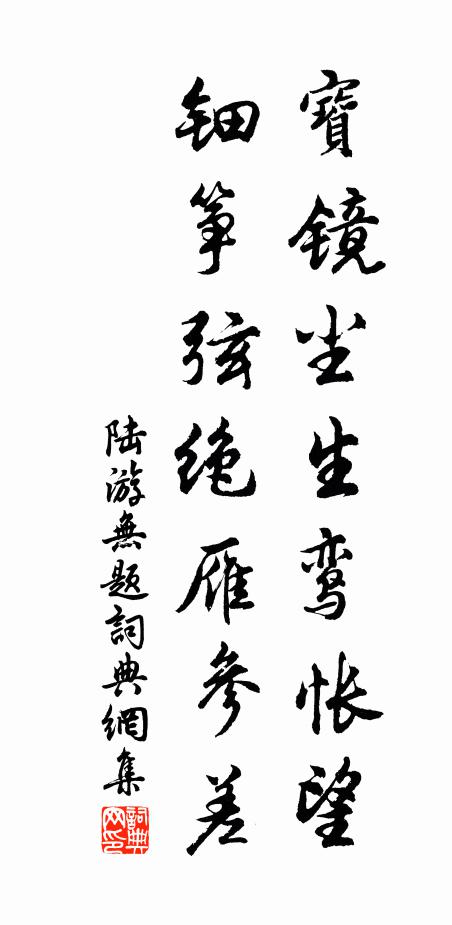 寶镜尘生鸾怅望
钿筝弦绝雁参差
陆游無题詞典網集
詞典
网印